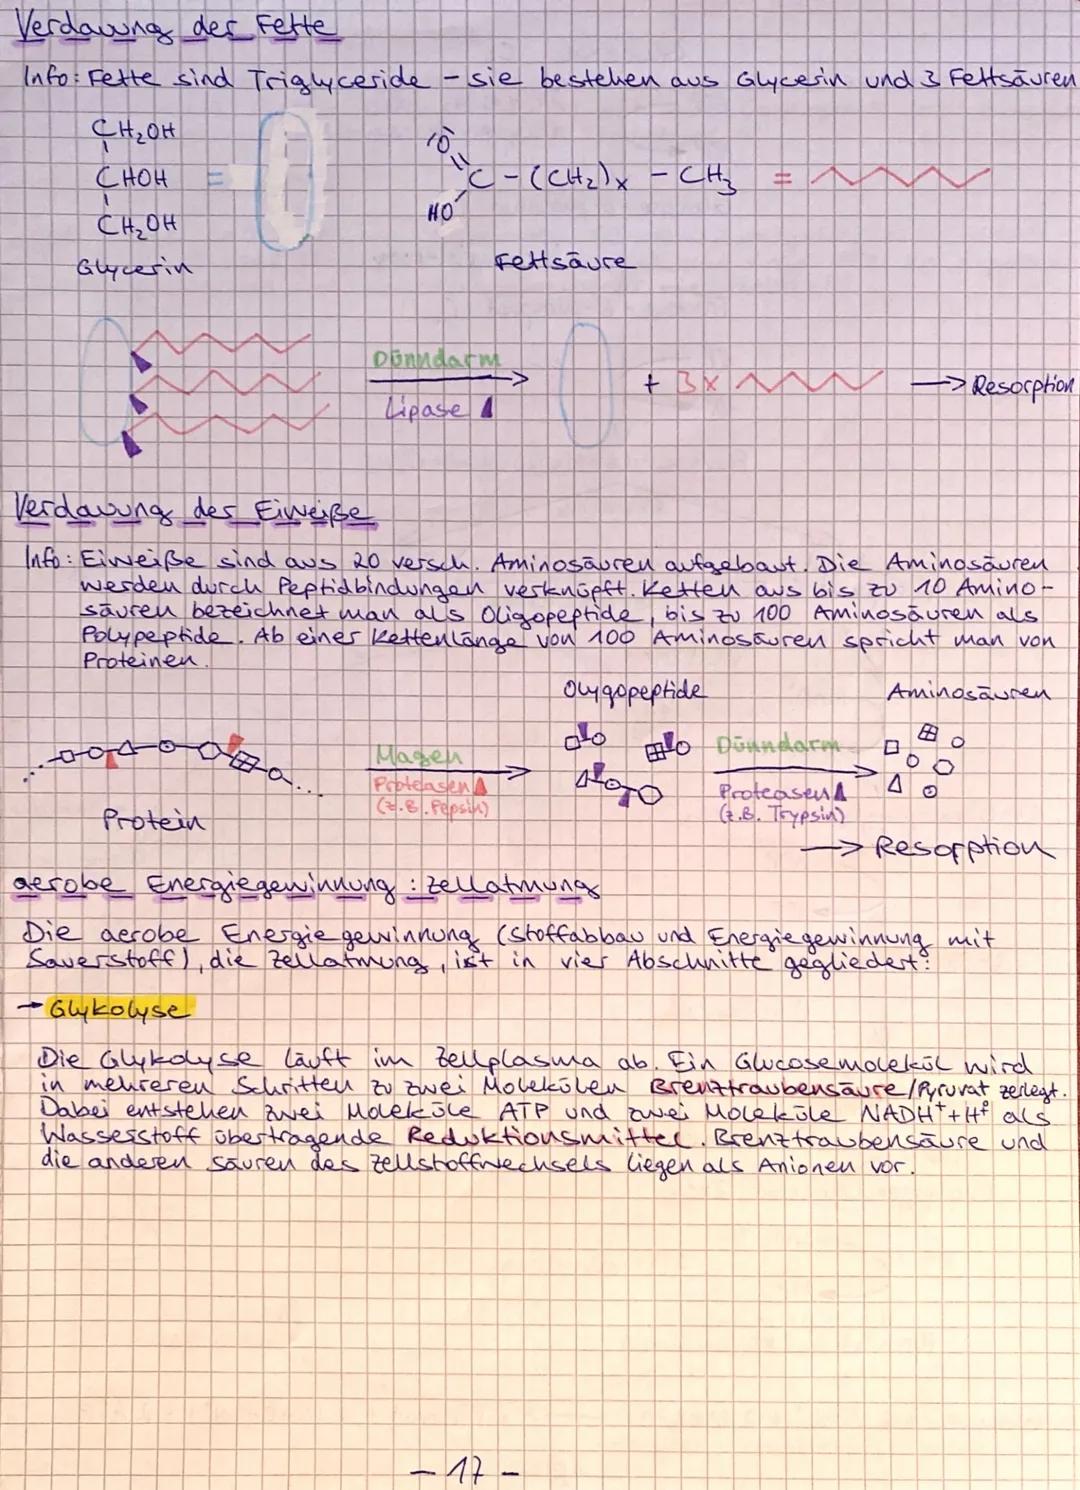 Verdauung der Fette
Info: Fette sind Triglyceride - sie bestehen aus Glycerin und 3 Fettsäuren
CH₂OH
CHOH =
CH₂OH
Glycerin
O
C - (CH₂)x - CH₃ =
HO
Fettsäure
Dünndarm
Lipase
+ 3x → Resorption
Verdauung der Eiweiße
Info: Eiweiße sind aus 20 versch. Aminosäuren aufgebaut. Die Aminosäuren
werden durch Peptidbindungen verknüpft. Ketten aus bis zu 10 Amino-
säuren bezeichnet man als Oligopeptide, bis zu 100 Aminosäuren als
Polypeptide. Ab einer Kettenlänge von 100 Aminosäuren spricht man von
Proteinen.
Olygopeptide
Aminosäuren
Magen
Proteasen
(z.B. Pepsin)
Dünndarm
Proteasen
(z.B. Trypsin)
Protein
→ Resorption
aerobe Energiegewinnung: Zellatmung
Die aerobe Energiegewinnung (Stoffabbau und Energiegewinnung mit
Sauerstoff), die Zellatmung, ist in vier Abschnitte gegliedert:
→ Glykolyse
Die Glykolyse läuft im Zellplasma ab. Ein Glucosemolekül wird
in mehreren Schritten zu zwei Molekülen Brenztraubensäure/Pyruvat zerlegt.
Dabei entstehen zwei Moleküle ATP und zwei Moleküle NADH⁺+H⁺ als
Wasserstoff übertragende Reduktionsmittel. Brenztraubensäure und
die anderen Säuren des Zellstoffwechsels liegen als Anionen vor.
- 17 -